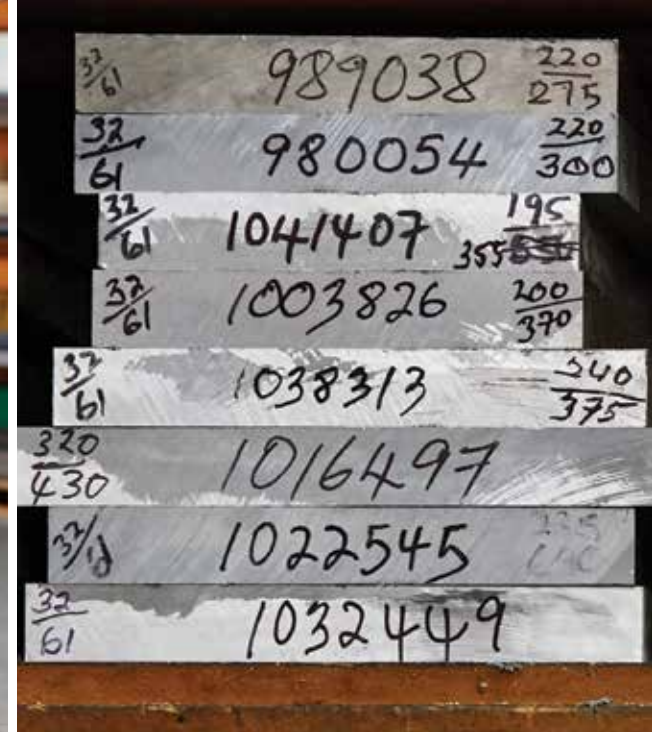 32/61 989038 220/275
32/61 980054 220/300
32/61 1041407 195/355
32/61 1003826 200/370
32/61 1038313 340/375
320/430 1016497
32/61 1022545
32/61 1032449